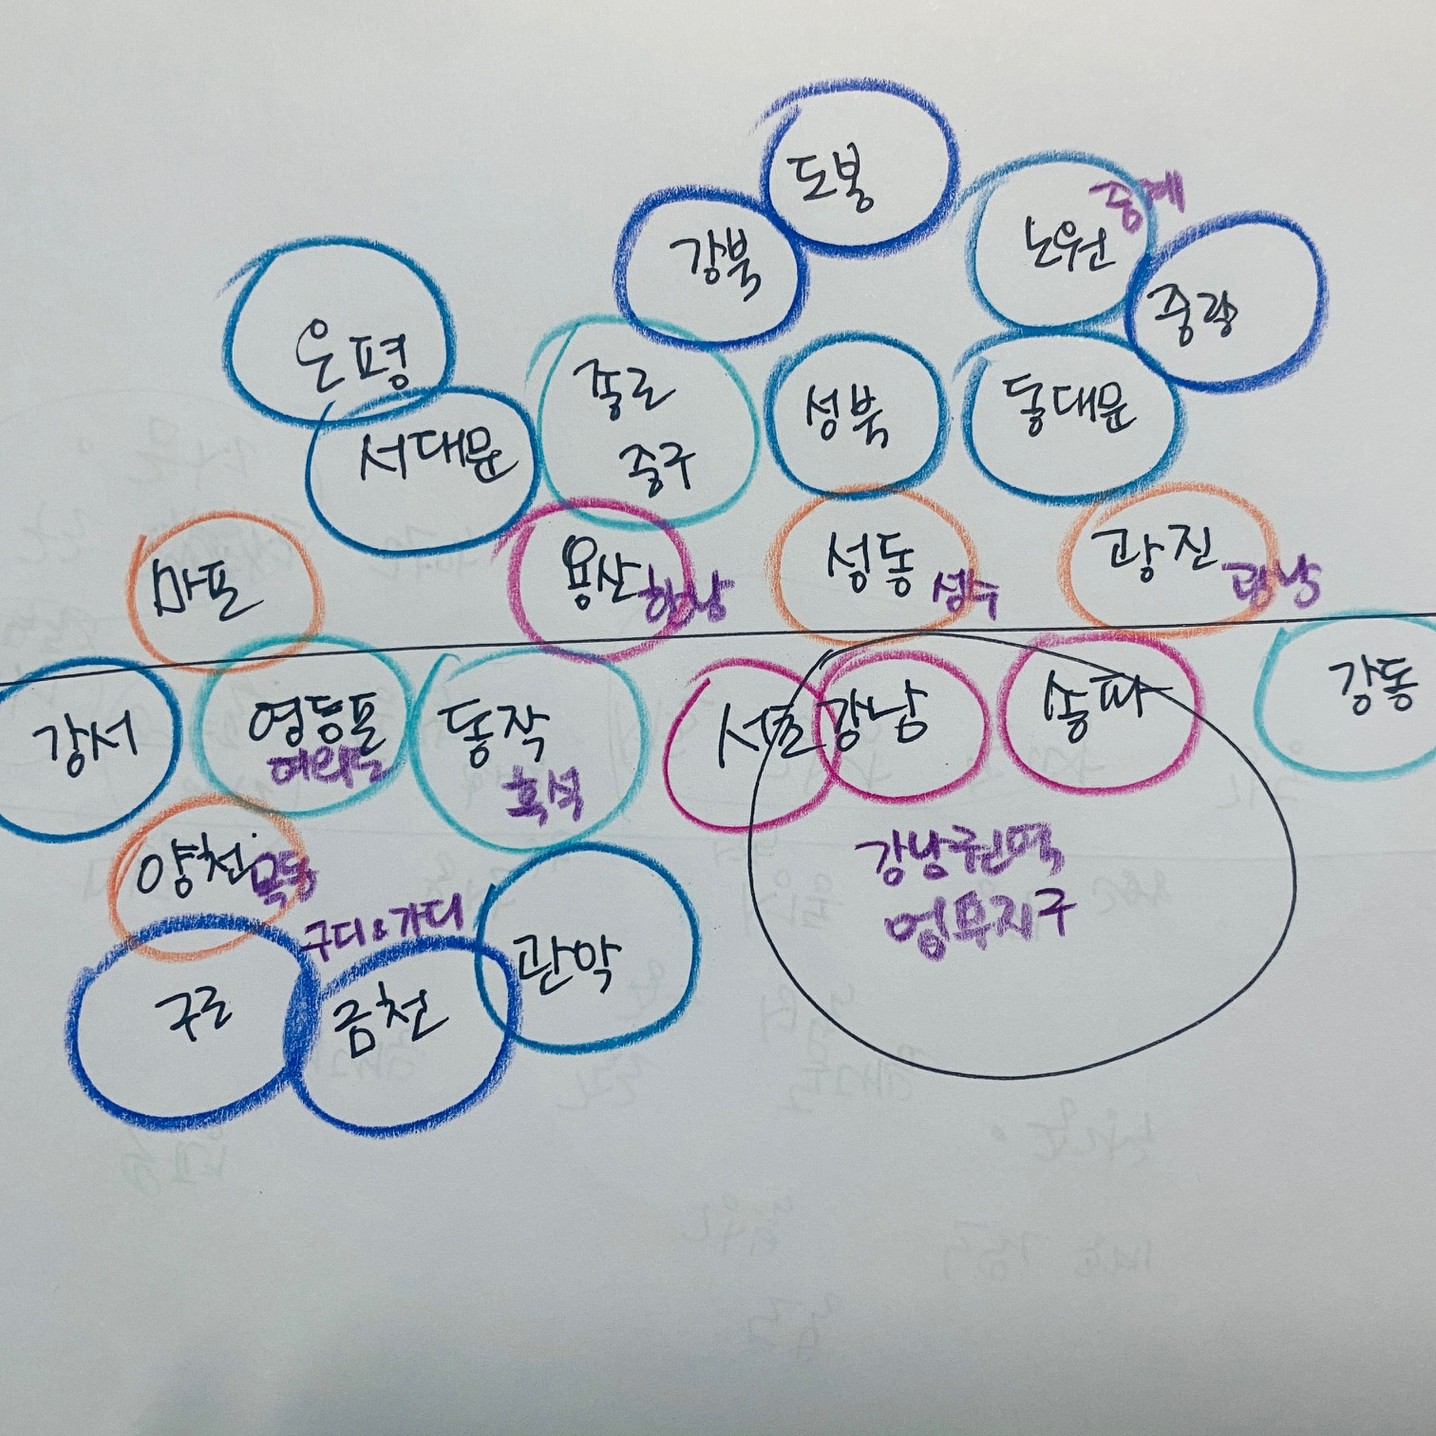 도봉
강북
노원
중계
중랑
은평
서대문
종로
중구
성북
동대문
마포
용산
한남
성동
성수
광진
광남
강서
영등포
여의도
동작
흑석
서초
강남
송파
강동
양천
목동
강남권역
업무지구
구디&가디
구로
금천
관악